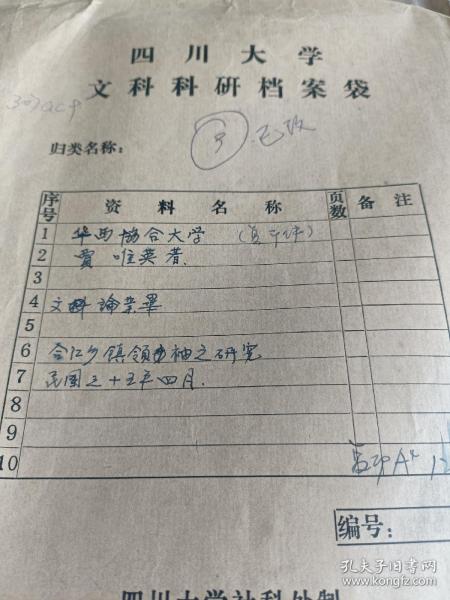 四川大学
文科科研档案袋
③ 已改
归类名称：
序号 资料名称 页数 备注
1 华西協合大学 (复印件)
2 賈唯英著.
3
4 文科論業畢
5
6 合江乡镇领袖之研究
7 民国三十五年四月.
8
9
10
编号：
四川大学社科处制
孔夫子旧书网
www.kongfz.com